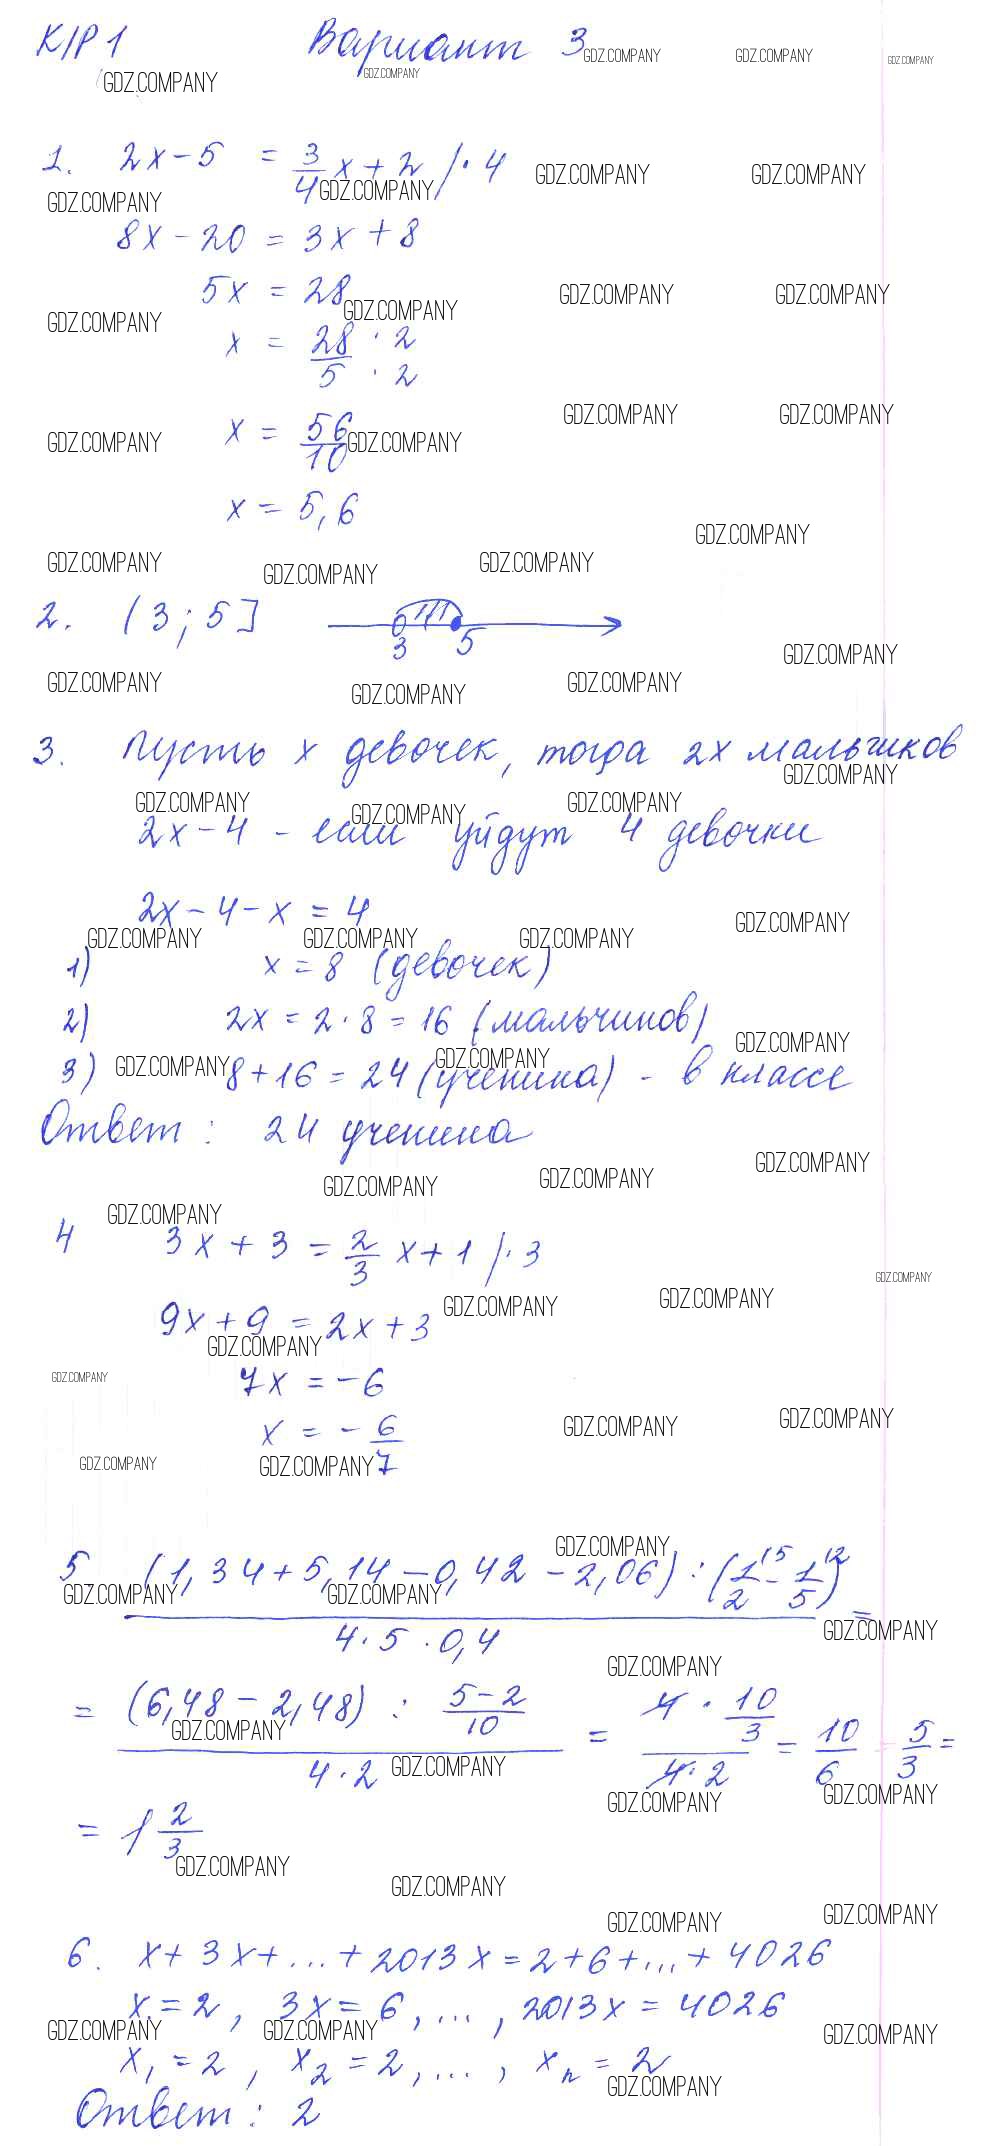 К/Р 1 Вариант 3
GDZ.COMPANY GDZ.COMPANY GDZ.COMPANY GDZ.COMPANY GDZ.COMPANY
1. 2x − 5 = 3/4 x + 2 /· 4
GDZ.COMPANY GDZ.COMPANY GDZ.COMPANY GDZ.COMPANY
8x − 20 = 3x + 8
5x = 28
GDZ.COMPANY GDZ.COMPANY GDZ.COMPANY GDZ.COMPANY
x = 28 · 2 / 5 · 2
x = 56/10
GDZ.COMPANY GDZ.COMPANY GDZ.COMPANY GDZ.COMPANY
x = 5,6
GDZ.COMPANY GDZ.COMPANY GDZ.COMPANY GDZ.COMPANY
2. (3; 5] 3 5
GDZ.COMPANY GDZ.COMPANY GDZ.COMPANY GDZ.COMPANY
3. Пусть x девочек, тогда 2x мальчиков
GDZ.COMPANY GDZ.COMPANY GDZ.COMPANY GDZ.COMPANY
2x − 4 - если уйдут 4 девочки
2x − 4 − x = 4
GDZ.COMPANY GDZ.COMPANY GDZ.COMPANY GDZ.COMPANY
1) x = 8 (девочек)
2) 2x = 2 · 8 = 16 (мальчиков)
GDZ.COMPANY GDZ.COMPANY GDZ.COMPANY
3) 8 + 16 = 24 (ученика) - в классе
Ответ: 24 ученика
GDZ.COMPANY GDZ.COMPANY GDZ.COMPANY GDZ.COMPANY
4 3x + 3 = 2/3 x + 1 /· 3
GDZ.COMPANY GDZ.COMPANY GDZ.COMPANY
9x + 9 = 2x + 3
GDZ.COMPANY GDZ.COMPANY
7x = −6
x = − 6/7
GDZ.COMPANY GDZ.COMPANY GDZ.COMPANY GDZ.COMPANY
GDZ.COMPANY
5 (1,34 + 5,14 − 0,42 − 2,06) : (1/2 ^15 − 1/5 ^12) / 4 · 5 · 0,4 =
GDZ.COMPANY GDZ.COMPANY GDZ.COMPANY GDZ.COMPANY
= (6,48 − 2,48) : 5−2/10 / 4 · 2 = 4 · 10/3 / 4 · 2 = 10/6 = 5/3 =
GDZ.COMPANY GDZ.COMPANY GDZ.COMPANY GDZ.COMPANY
= 1 2/3
GDZ.COMPANY GDZ.COMPANY GDZ.COMPANY GDZ.COMPANY
6. x + 3x + ... + 2013x = 2 + 6 + ... + 4026
x = 2, 3x = 6, ..., 2013x = 4026
GDZ.COMPANY GDZ.COMPANY GDZ.COMPANY
x₁ = 2, x₂ = 2, ..., xₙ = 2
GDZ.COMPANY
Ответ: 2